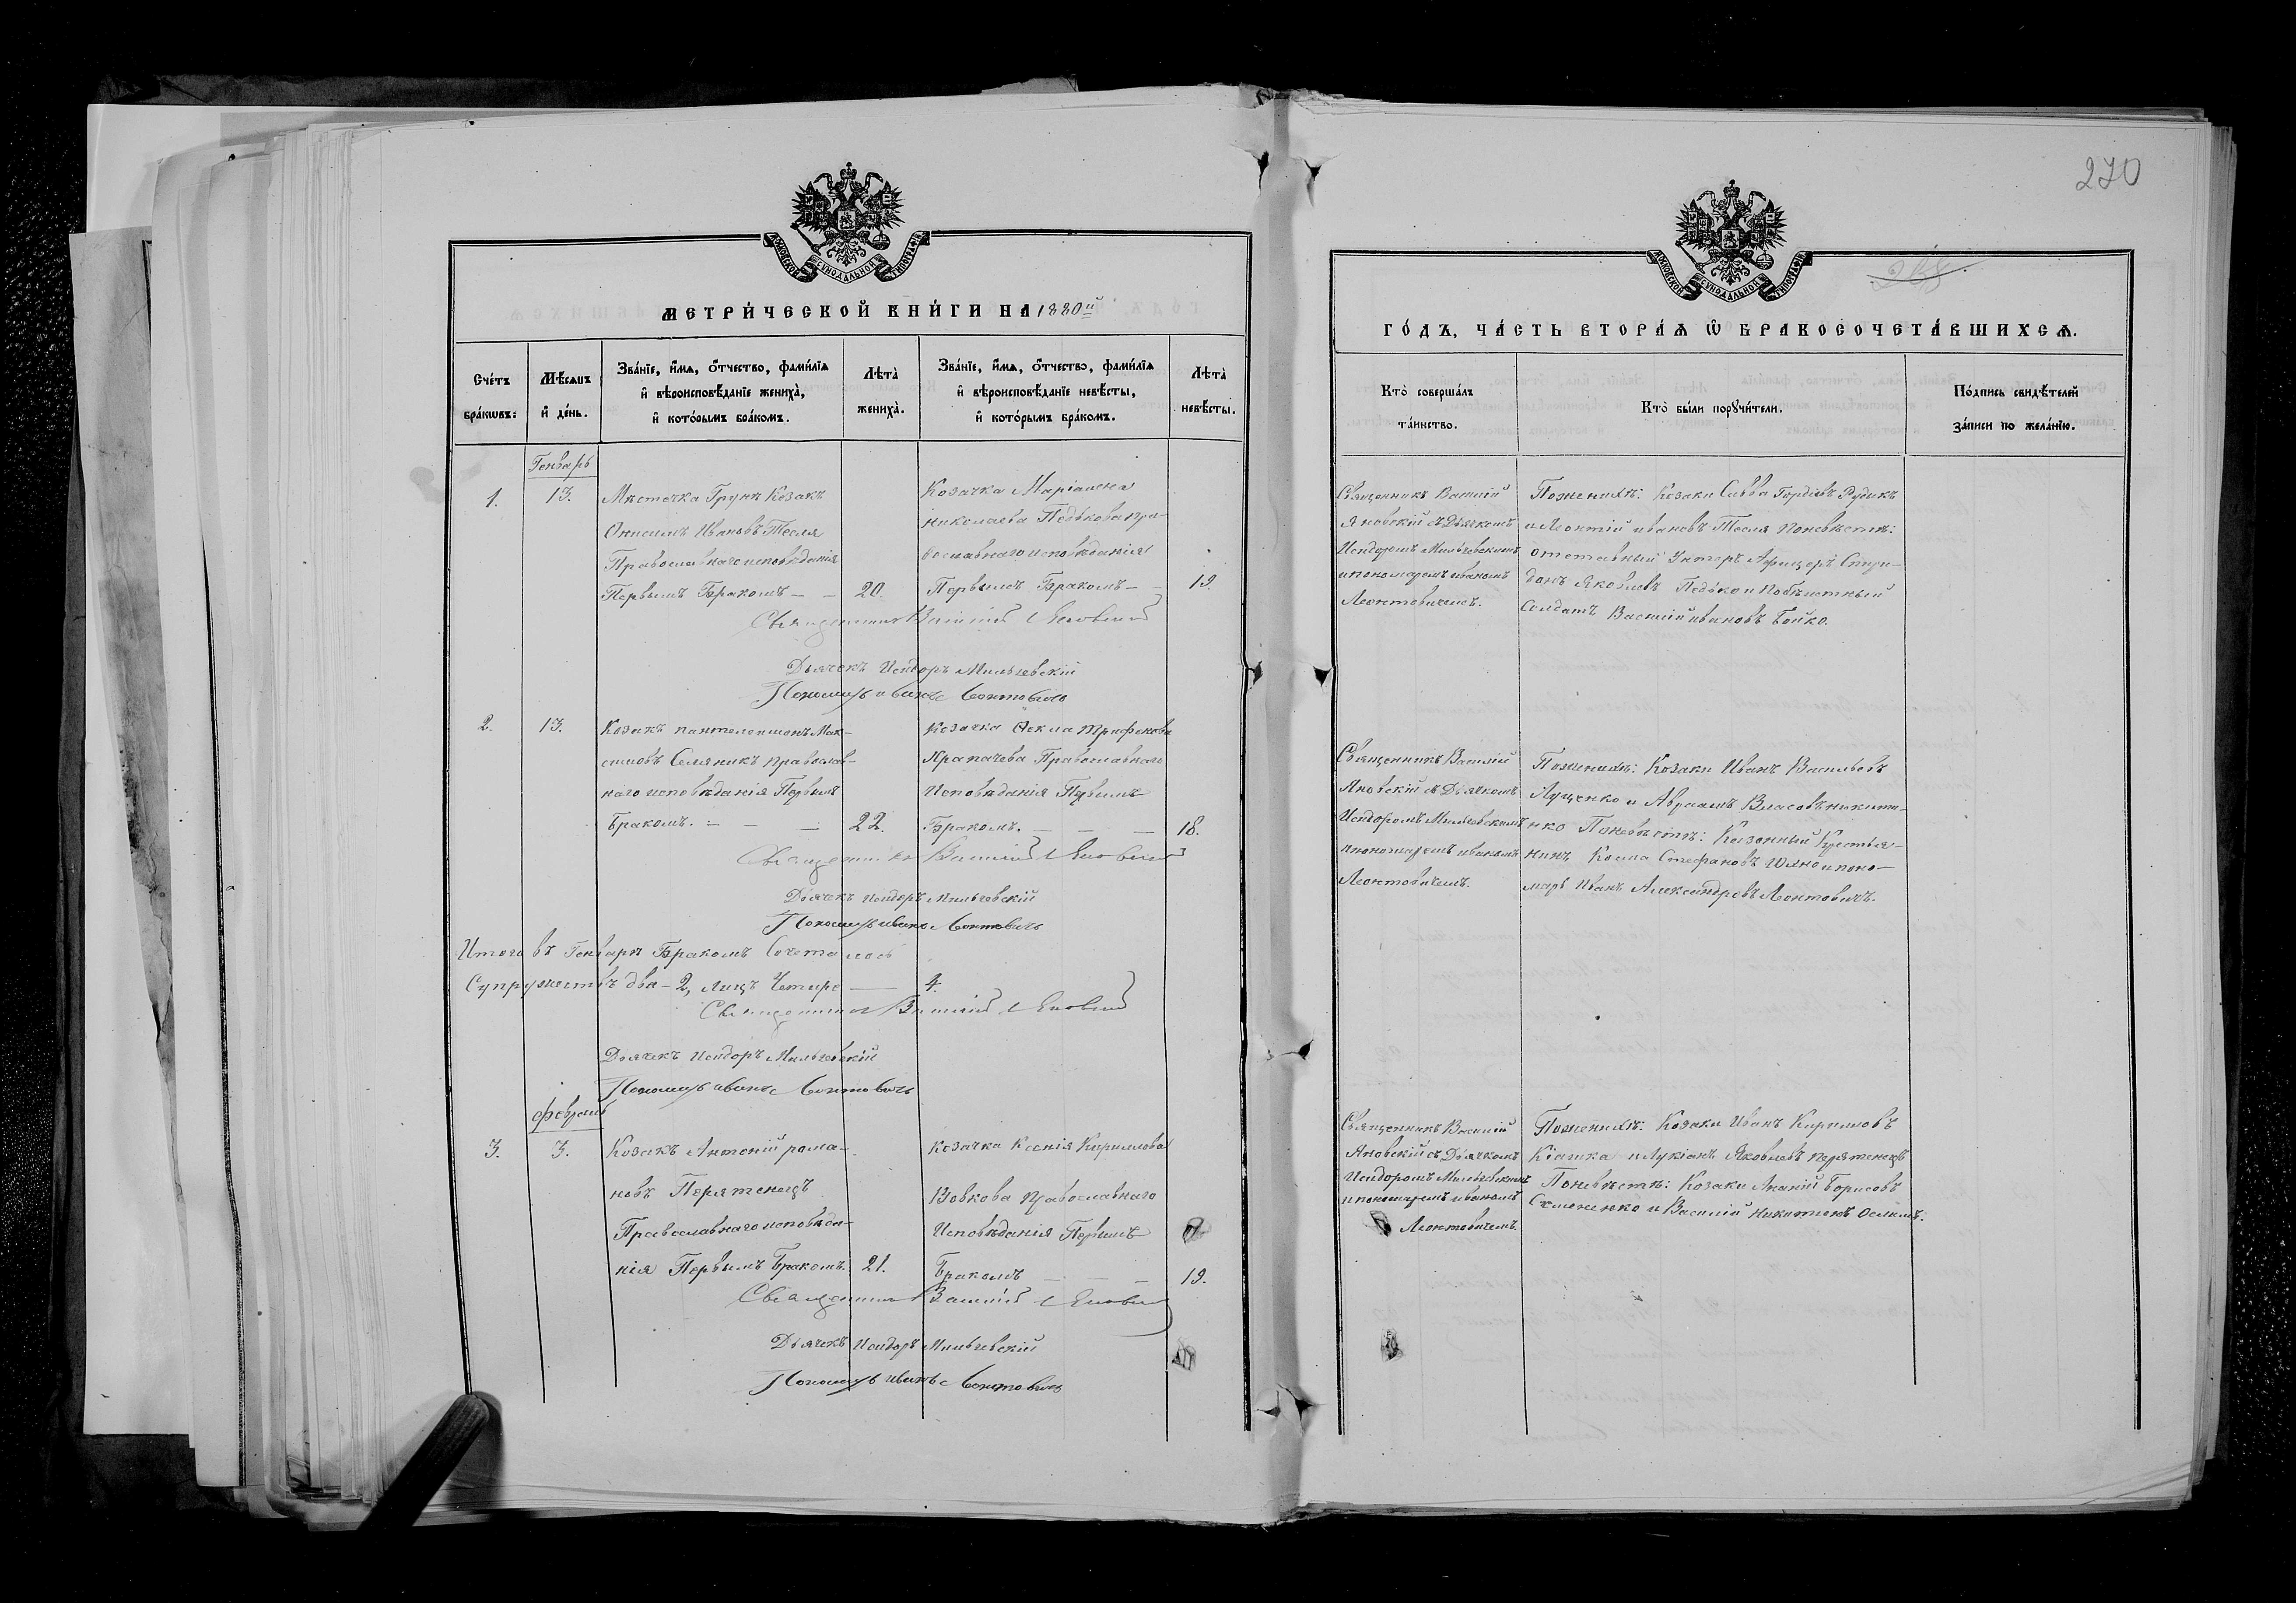 270
МЕТРИ́ЧЕСКОЙ КНИ́ГИ НА 1880й
Сче́тъ бра́кωвъ:
Мѣ́сѧцъ и҆ де́нь.
Зва́нїе, и҆́мѧ, ѻ҆́тчество, фами́лїѧ
и҆ вѣроисповѣ́данїе жениха̀,
и҆ кото́рымъ бра́комъ.
Лѣта̀ жениха̀.
Зва́нїе, и҆́мѧ, ѻ҆́тчество, фами́лїѧ
и҆ вѣроисповѣ́данїе невѣ́сты,
и҆ кото́рымъ бра́комъ.
Лѣта̀ невѣ́сты.
Генварь
1.
13.
Мѣстечка Груня Козакъ
Онисимъ Ивановъ Тесля
Православнаго исповѣданія
Первымъ Бракомъ — —
20.
Козачка Маріамна
Николаева Педькова пра-
вославнаго исповѣданія
Первымъ Бракомъ —
19.
Священникъ Василій Яновскій
Дьячекъ Исидоръ Мильгевскій
Пономарь Иванъ Леонтовичъ
2.
13.
Козакъ Пантелеимонъ Мак-
симовъ Семяникъ Православ-
наго исповѣданія Первымъ
Бракомъ. — — —
22.
Козачка Ѳекла Трифонова
Крапачева Православнаго
Исповѣданія Первымъ
Бракомъ. — — —
18.
Священникъ Василій Яновскій
Дьячекъ Исидоръ Мильгевскій
Пономарь Иванъ Леонтовичъ
Итого въ Генварѣ Бракомъ Сочеталось
Супружествъ два — 2, лицъ Четыре — 4.
Священникъ Василій Яновскій
Дьячекъ Исидоръ Мильгевскій
Пономарь Иванъ Леонтовичъ
Февраль
3.
3.
Козакъ Антоній Рома-
новъ Перятенецъ
Православнаго исповѣда-
нія Первымъ Бракомъ.
21.
Козачка Ксенія Кириллова
Вовкова Православнаго
Исповѣданія Первымъ
Бракомъ — — —
19.
Священникъ Василій Яновскій
Дьячекъ Исидоръ Мильгевскій
Пономарь Иванъ Леонтовичъ
ГО́ДЪ, ЧА́СТЬ ВТОРА́Ѧ Ѽ БРАКОСОЧЕТА́ВШИХСѦ.
Кто̀ соверша́лъ
та́инство.
Кто̀ бы́ли порꙋчи́тели.
По́дпись свидѣ́телей
за́писи по жела́нїю.
Священникъ Василій
Яновскій съ Дьячкомъ
Исидоромъ Мильгевскимъ
и пономаремъ Иваномъ
Леонтовичемъ.
По женихѣ: Козаки Савва Гордіевъ Рудикъ
и Леонтій Ивановъ Тесля По невѣстѣ:
отставный Унтеръ Афицеръ Спири-
донъ Яковлевъ Педько и Побѣлетный
Солдатъ Василій Ивановъ Бойко.
Священникъ Василій
Яновскій съ Дьячкомъ
Исидоромъ Мильгевскимъ
и пономаремъ Иваномъ
Леонтовичемъ.
По женихѣ: Козаки Иванъ Васильевъ
Луценко и Авраамъ Власовъ Никити-
нко По невѣстѣ: Казенный Крестья-
нинъ Косма Стефановъ и поно-
марь Иванъ Александровъ Леонтовичъ.
Священникъ Василій
Яновскій съ Дьячкомъ
Исидоромъ Мильгевскимъ
и пономаремъ Иваномъ
Леонтовичемъ.
По женихѣ: Козаки Иванъ Кирилловъ
Кіашка и Лукіанъ Яковлевъ Перятенецъ
По невѣстѣ: Козаки Ананій Борисовъ
Семененко и Василій Никитинъ